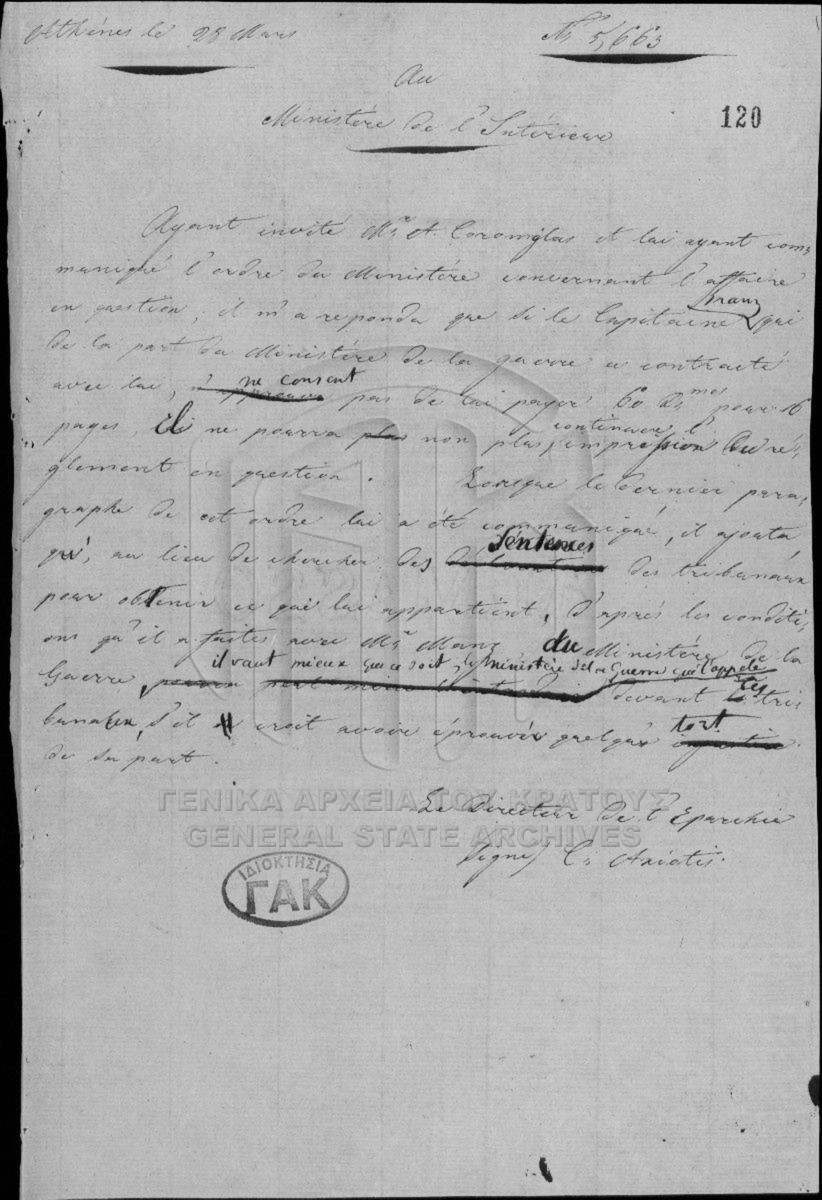 Athènes le 28 Mars
Nr 5,663
Au
Ministère de l'Intérieur
120
Ayant invité Mr A. Coromilas et lui ayant com-
muniqué l'ordre du Ministère concernant l'affaire
en question, il m'a repondu que si le Capitaine Manz qui
de la part du Ministère de la guerre a contracté
avec lui, ne consent pas de lui payer 60 pour 16
pages, il ne pourra plus non plus continuer l'impression du ré-
glement en question. Lorsque le dernier para-
graphe de cet ordre lui a été communiqué, il ajouta
qu', au lieu de chercher des sentences des tribunaux
pour obtenir ce qui lui appartient, d'après les conditi-
ons qu'il a faites avec Mr Manz, du Ministère de la
Guerre, il vaut mieux que ce soit le Ministère de la Guerre qui l'appele
devant les tri-
bunaux, s'il croit avoir éprouvér quelque tort
de sa part.
Le Directeur de l'Eparchie
Signé) C. Axiotis.
ΓΕΝΙΚΑ ΑΡΧΕΙΑ ΤΟΥ ΚΡΑΤΟΥΣ
GENERAL STATE ARCHIVES
ΙΔΙΟΚΤΗΣΙΑ
ΓΑΚ